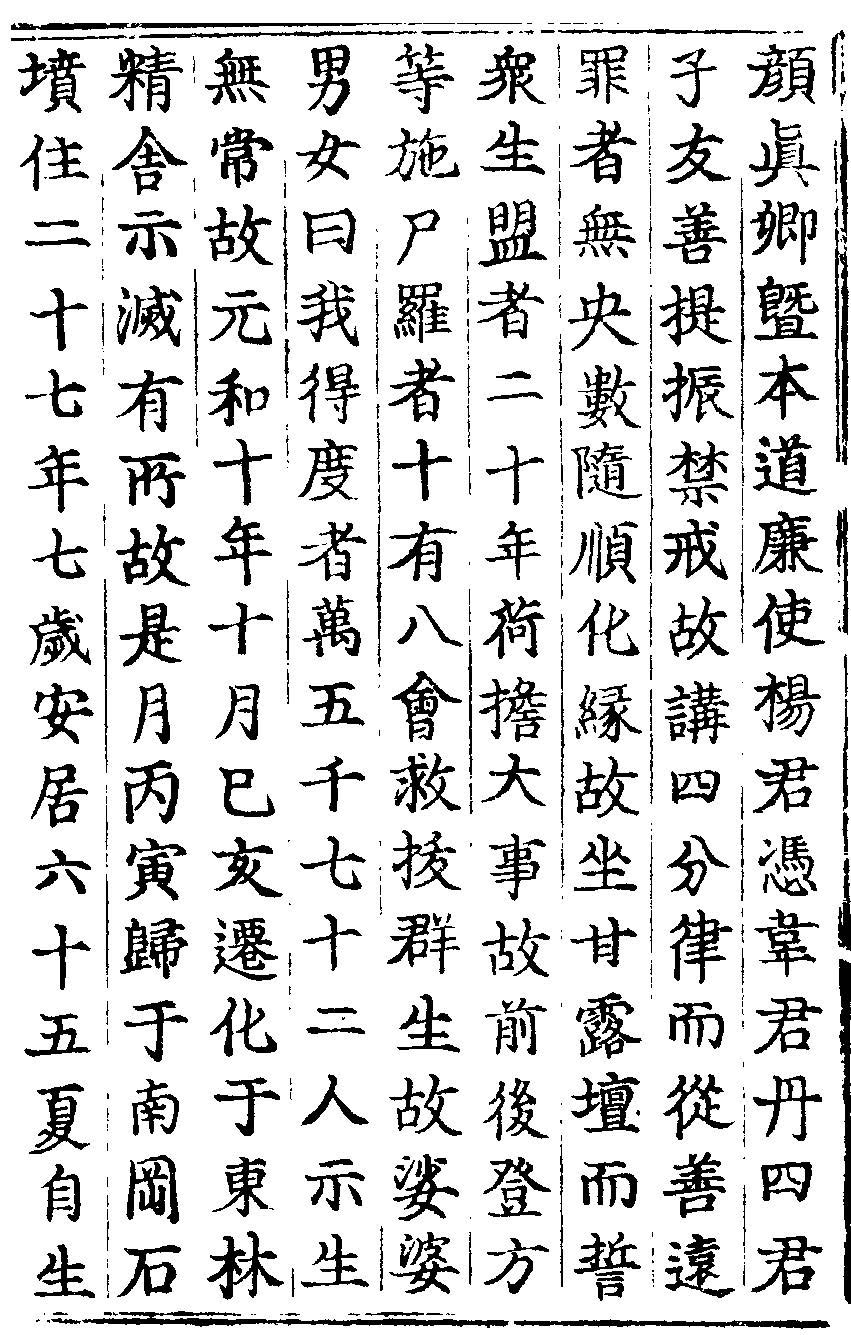 顔眞卿曁本道廉使楊君憑韋君丹四君
子友善提振禁戒故講四分律而從善遠
罪者無央數隨順化縁故坐甘露壇而誓
衆生盟者二十年荷擔大事故前後登方
等施尸羅者十有八會救拔群生故娑婆
男女曰我得度者萬五千七十二人示生
無常故元和十年十月已亥遷化于東林
精舍示滅有所故是月丙寅歸于南岡石
墳住二十七年七歲安居六十五夏自生